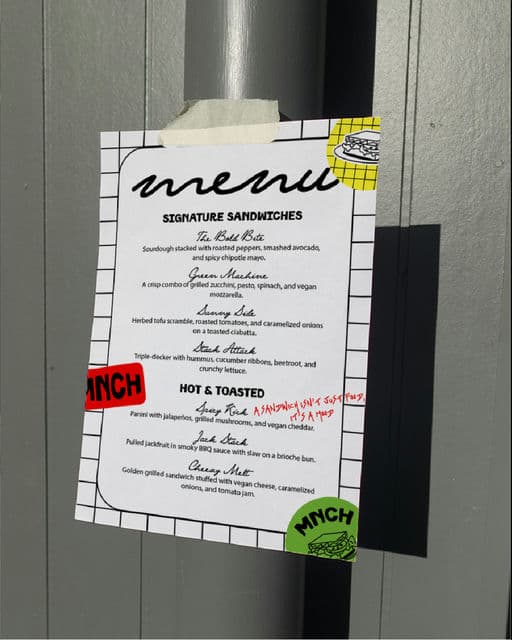 menu
SIGNATURE SANDWICHES
The Bold Bite
Sourdough stacked with roasted peppers, smashed avocado,
and spicy chipotle mayo.
Green Machine
A crisp combo of grilled zucchini, pesto, spinach, and vegan
mozzarella.
Sunny Side
Herbed tofu scramble, roasted tomatoes, and caramelized onions
on a toasted ciabatta.
Stack Attack
Triple-decker with hummus, cucumber ribbons, beetroot, and
crunchy lettuce.
MNCH
HOT & TOASTED
Spicy Kick
A SANDWICH ISN'T JUST FOOD,
IT'S A MOOD
Panini with jalapeños, grilled mushrooms, and vegan cheddar.
Jack Stack
Pulled jackfruit in smoky BBQ sauce with slaw on a brioche bun.
Cheezy Melt
Golden grilled sandwich stuffed with vegan cheese, caramelized
onions, and tomato jam.
MNCH